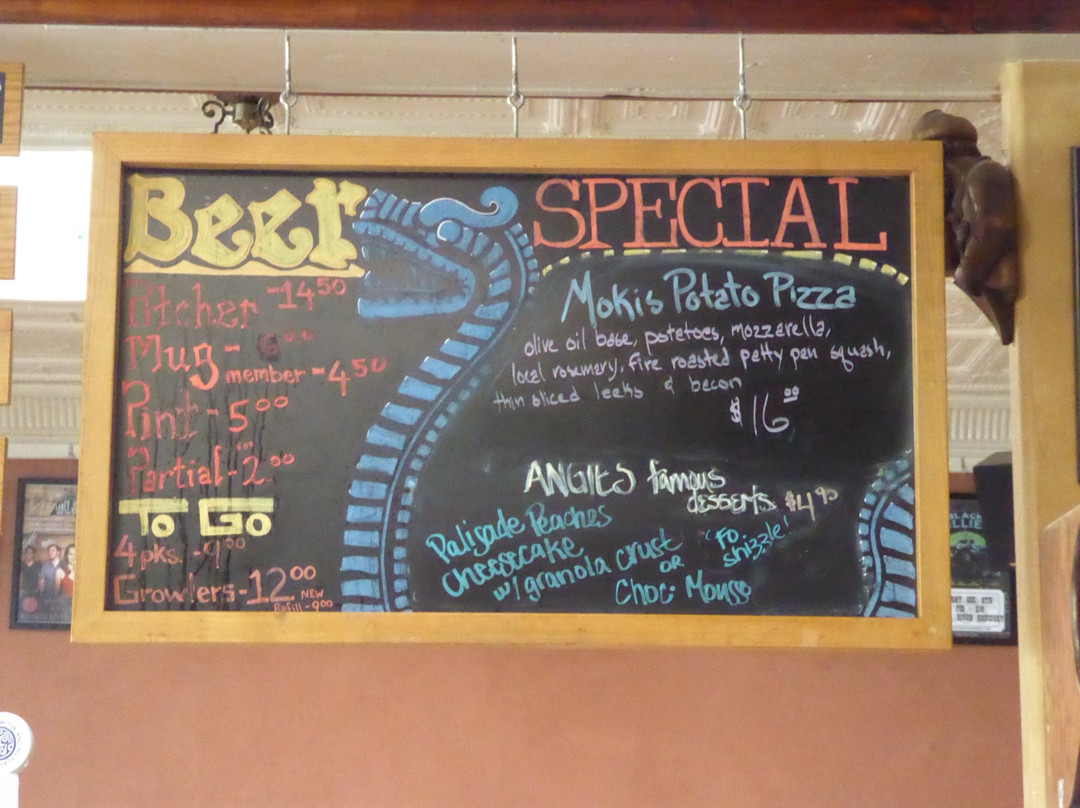 Beer
Pitcher - 14 50
Mug - 6 00
member - 4 50
Pint - 5 00
Partial - 2 00
To Go
4 pks. - 9 00
Growlers - 12 00 NEW
Refill - 9 00
SPECIAL
Mokis Potato Pizza
olive oil base, potatoes, mozzarella,
local rosemary, fire roasted patty pan squash,
thin sliced leeks & bacon
$16 00
ANGIES famous
DESSERTS $4 95
Palisade Peaches
Cheesecake
w/ granola crust
OR
Choc. Mousse
"Fo
shizzle!"